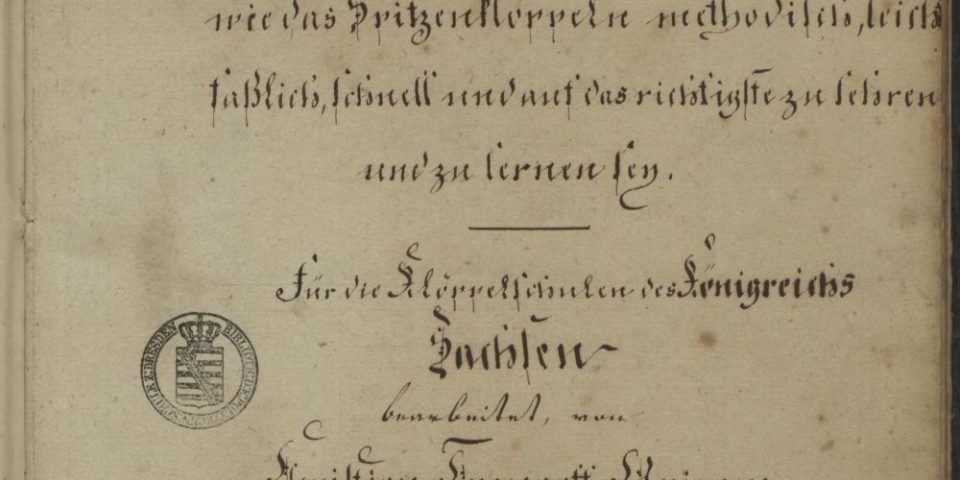 wie das Spitzenklöppeln methodisch, leicht
faßlich, schnell und auf das richtigste zu lehren
und zu lernen sey.
Für die Klöppelschulen des Königreichs
Sachsen
bearbeitet, von
BIBLIOTHEK
DRESDEN